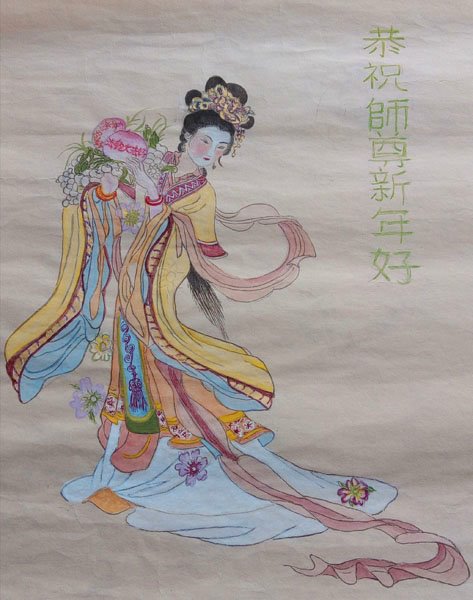 恭祝師尊新年好